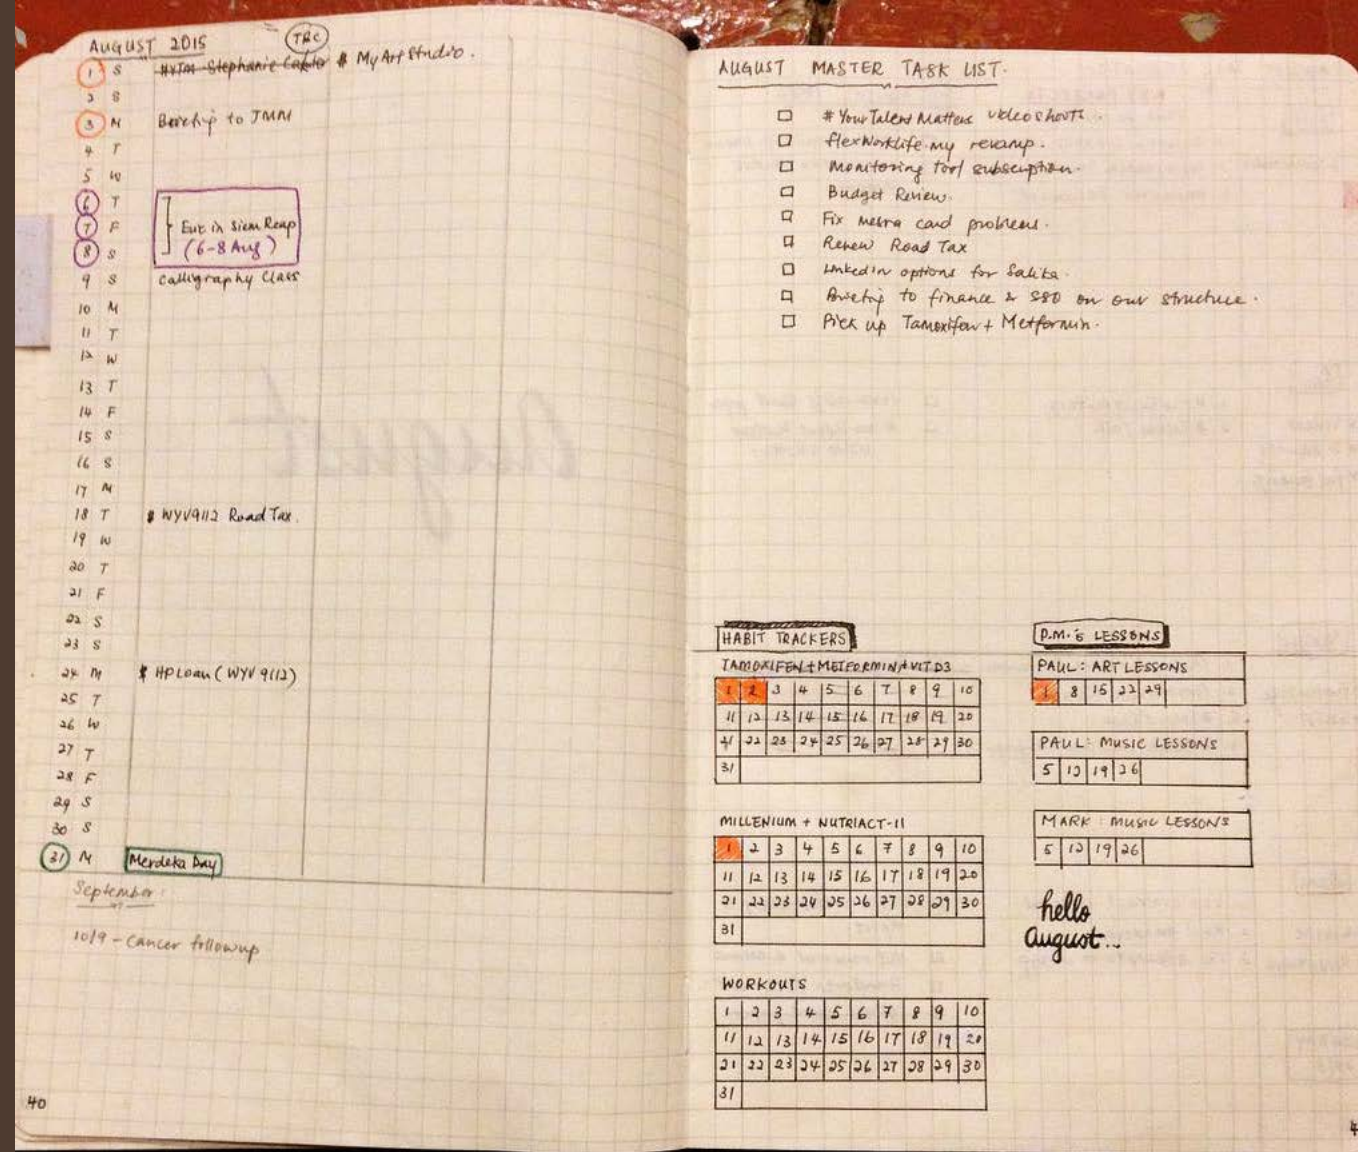 AUGUST 2015
TBC
1 S # MyArtStudio.
2 S
3 M to JMM
4 T
5 W
6 T
7 F in Siem Reap
8 S (6-8 Aug)
9 S Calligraphy Class
10 M
11 T
12 W
13 T
14 F
15 S
16 S
17 M
18 T $ WYV9112 Road Tax.
19 W
20 T
21 F
22 S
23 S
24 M $ HP Loan (WYV 9112)
25 T
26 W
27 T
28 F
29 S
30 S
31 M Merdeka Day
September:
10/9 - Cancer followup
40
AUGUST MASTER TASK LIST.
# YourTalentMatters videoshoots.
flexWorklife.my revamp.
Monitoring tool subscription.
Budget Review.
Fix mesra card problems.
Renew Road Tax
LinkedIn options for Salika.
Briefing to finance & SSO on our structure.
Pick up Tamoxifen + Metformin.
HABIT TRACKERS
TAMOXIFEN + METFORMIN + VIT D3
1 2 3 4 5 6 7 8 9 10
11 12 13 14 15 16 17 18 19 20
21 22 23 24 25 26 27 28 29 30
31
MILLENIUM + NUTRIACT-11
1 2 3 4 5 6 7 8 9 10
11 12 13 14 15 16 17 18 19 20
21 22 23 24 25 26 27 28 29 30
31
WORKOUTS
1 2 3 4 5 6 7 8 9 10
11 12 13 14 15 16 17 18 19 20
21 22 23 24 25 26 27 28 29 30
31
D.M.'s LESSONS
PAUL: ART LESSONS
1 8 15 22 29
PAUL: MUSIC LESSONS
5 12 19 26
MARK: MUSIC LESSONS
5 12 19 26
hello
August...
4